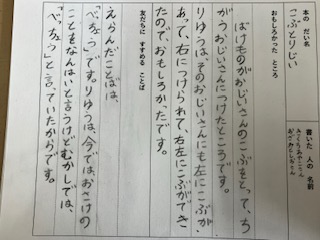 本の だい名
こぶとりじい
書いた 人の 名前
おもしろかった ところ
ばけものがおじいさんのこぶをとって、ち
がうおじいさんにつけたところです。
りゆうは、そのおじいさんにも左にこぶが
あって、右につけられて、右左にこぶができ
たのでおもしろかったです。
友だちに すすめる ことば
えらんだことばは、
「べっちょう」です。りゆうは、今ではおさけの
ことをなんはいと言うけどむかしでは、
「べっちょう」と言っていたからです。